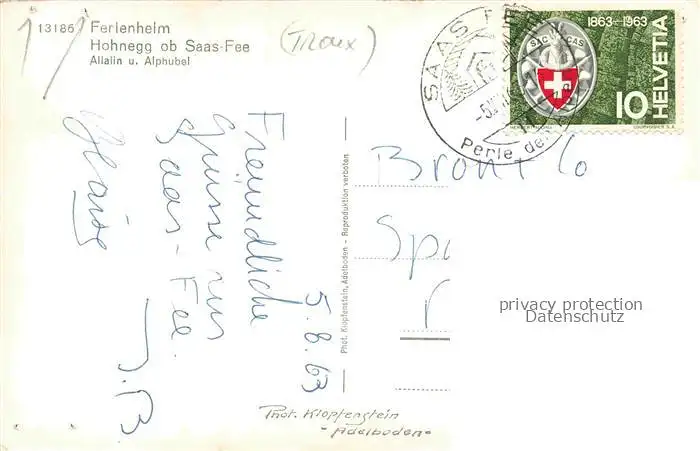 13186 Ferienheim
Hohnegg ob Saas-Fee
Allalin u. Alphubel
SAAS FEE
-5.
Perle der
1863-1963
S.A.C. C.A.S.
HELVETIA
10
COURVOISIER S.A.
5.8.63
Freundliche
Grüsse aus
Saas-Fee.
J.B
Phot. Klopfenstein, Adelboden - Reproduktion verboten
Bron
privacy protection
Datenschutz
Phot. Klopfenstein
- Adelboden -